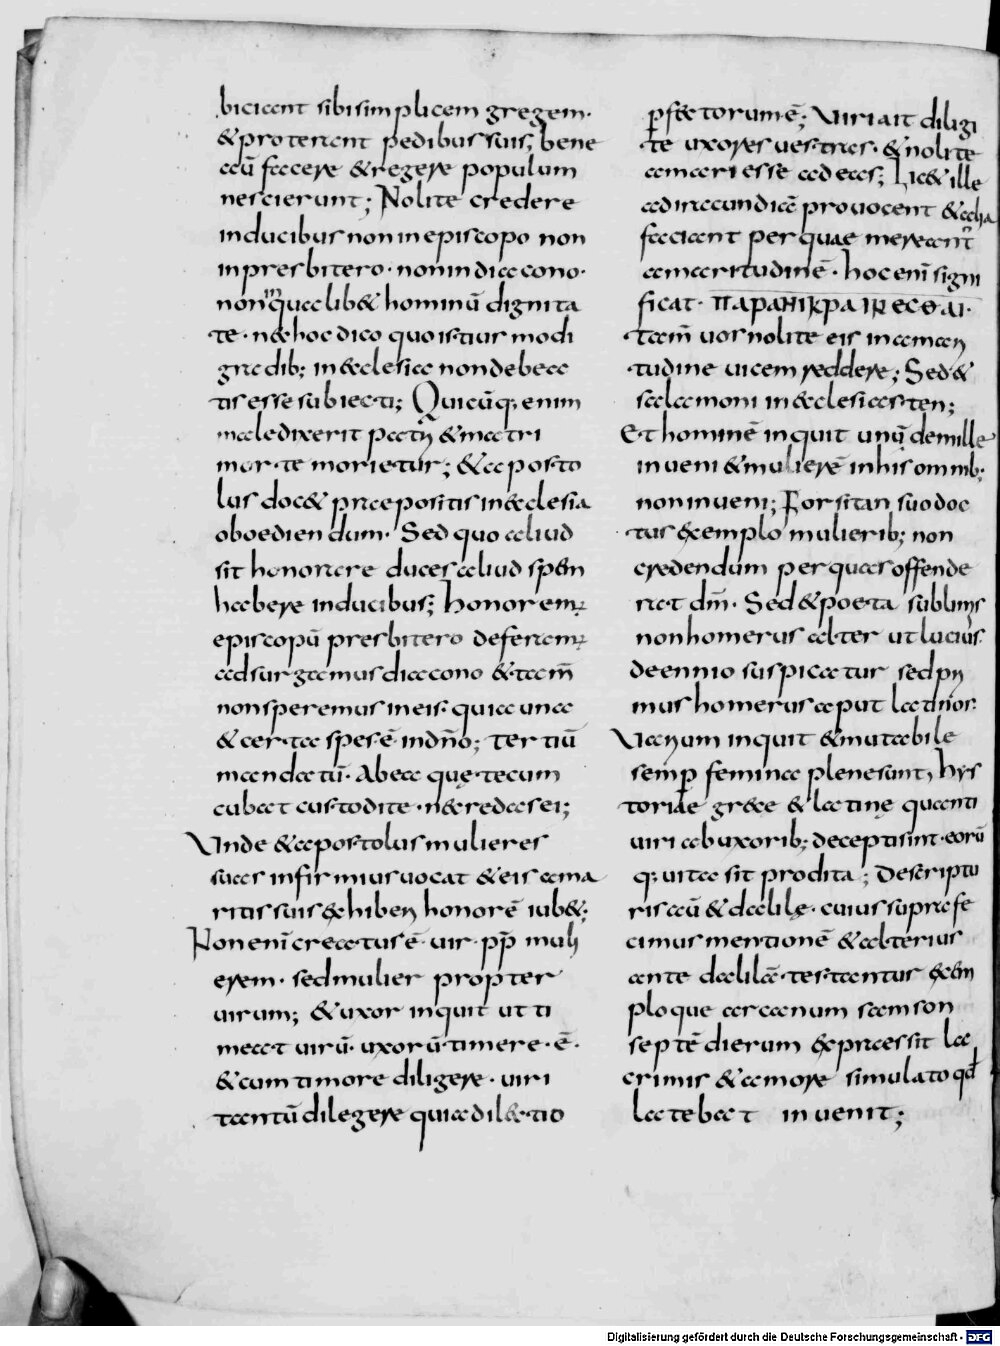 biciant sibi simplicem gregem·
& proterant pedibus suis; bene
aū facere & regere populum
nescierunt; Nolite credere
in ducibus non in episcopo non
in presbitero· non in diacono·
non inquā lib& hominū dignita
te· n& hoc dico quo istius modi
gradib; in &clesia non debea
tis esse subiecti; Quicūq; enim
maledixerit patri & matri
morte morietur; & aposto
lus doc& praepositis in &clesia
oboediendum· Sed quo aliud
sit honorare duces aliud spem
habere in ducibus; honorem;
episcopū presbitero deferam;
adsurgamus diacono & tam̄
non speremus in eis· quia una
& certa spes ē in dño; tertiū
mandatū· Abea quę tecum
cubat custodite· n& redas ei;
Unde & apostolus mulieres
suas infirmius uocat & eis ama
ritis suis &hiberi honorē iub&;
Non enī creatus ē· uir· pp̄ muli
erem· sed mulier propter
uirum; & uxor inquit ut ti
meat uirū· uxorū timere· ē·
& cum timore diligere· uiri
tantū dilegere quia dil&tio
p̄f&torum ē; Uiri ait diligi
te uxores uestras· & nolite
amari esse ad eas; Lic& ille
ad iracundiā prouocent & alia
faciant per quae mereant
amaritudinē· hoc enī signi
ficat· ΠΑΡΑΠΙΚΡΑΙΝΕCΘΑΙ·
tam̄ uos nolite eis in amari
tudine uicem reddere; Sed &
salamoni in &clesiasten;
Et hominē inquit unū de mille
inueni & mulierē in his omnib;
non inueni; Forsitan suo doc
tus &emplo mulierib; non
credendum per quas offende
rat dm̄· Sed & poeta sublimis
non homerus alter ut lucius
de ennio suspicatur sed pri
mus homerus aput latinos·
Uarium inquit & mutabile
semp̄ femina plene sunt, hys
toriae gr&e & latinę quanti
uiri ab uxorib; decepti sint· eorū
q; uita sit prodita; Descriptu
ris aū & dalilę· cuius supra fe
cimus mentionē & alterius
ante dalilā· testantur &em
plo que carcanum samson
septē dierum &praessit la
crimis & amore simulato qđ
latebat inuenit;